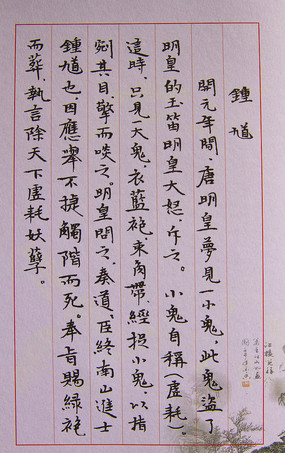 鍾馗
開元年間，唐明皇夢見一小鬼，此鬼盜了
明皇的玉笛明皇大怒，斥之。小鬼自稱（虛耗）。
這時，只見大鬼，衣藍袍，束角帶，經捉小鬼，以指
剜其目，擘而啖之。明皇問之，奏道，臣終南山進士
鍾馗也因應舉不捷觸階而死。奉旨賜綠袍
而葬，執言除天下虛耗妖孽。